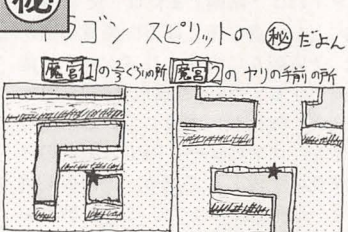 秘
ドラゴン スピリットの ㊙ だよん
魔宮1の2/3ぐらいの所
魔宮2の ヤリの手前の所